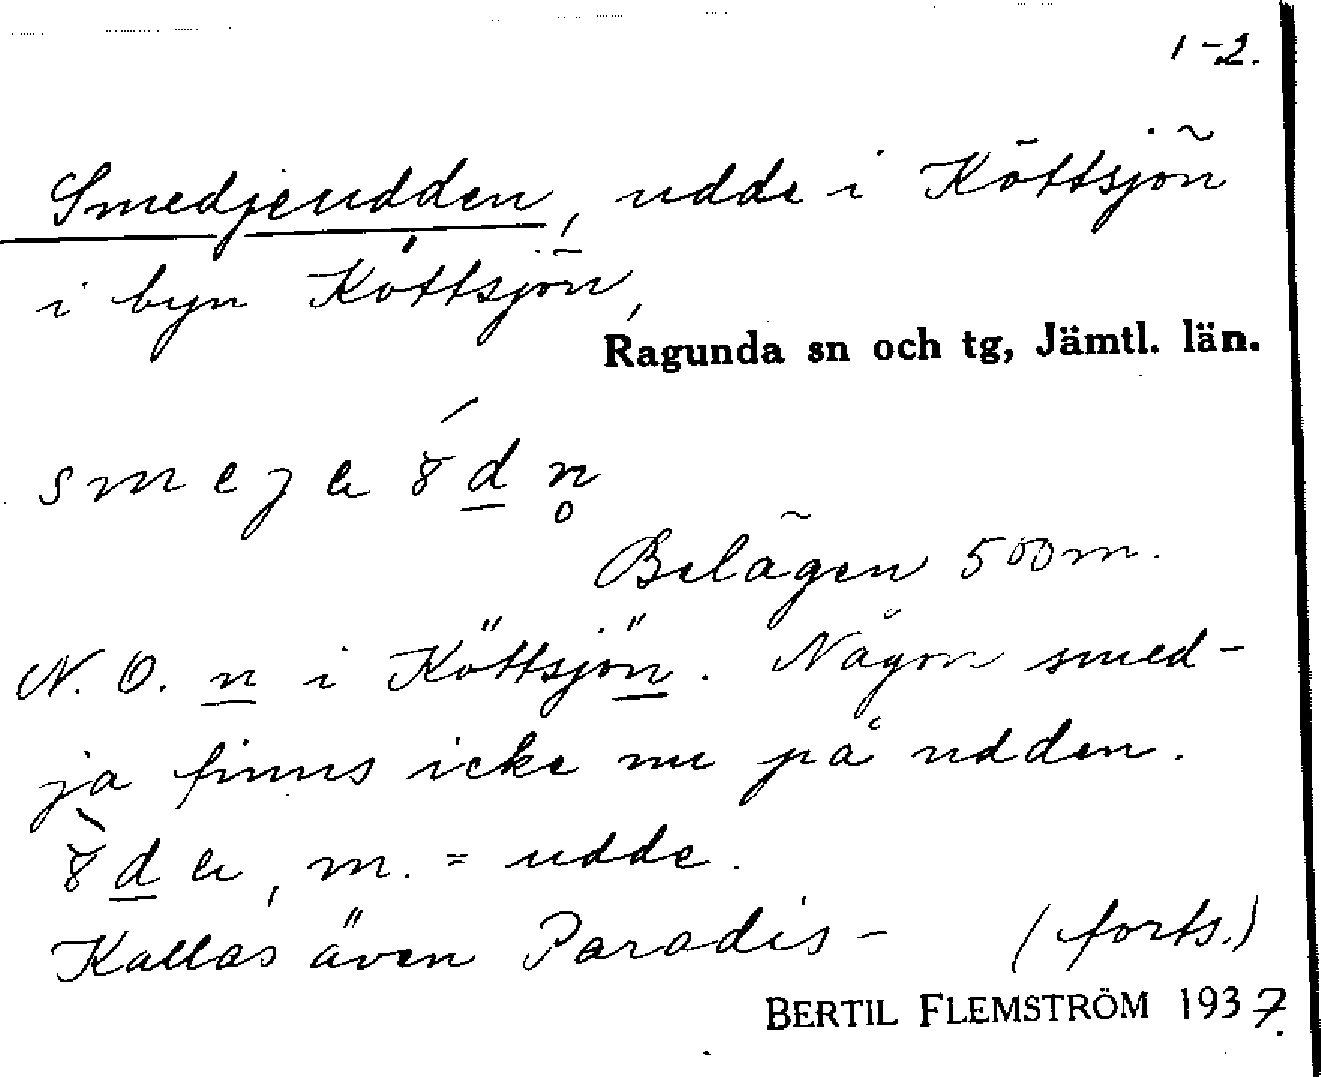 1-2.
Smedjeudden, udde i Köttsjön
i byn Köttsjön,
Ragunda sn och tg, Jämtl. län.
Belägen 500 m.
N. O. n i Köttsjön. Någon smed-
ja finns icke nu på udden.
m. = udde.
Kallas även Paradis- (forts.)
BERTIL FLEMSTRÖM 1937.